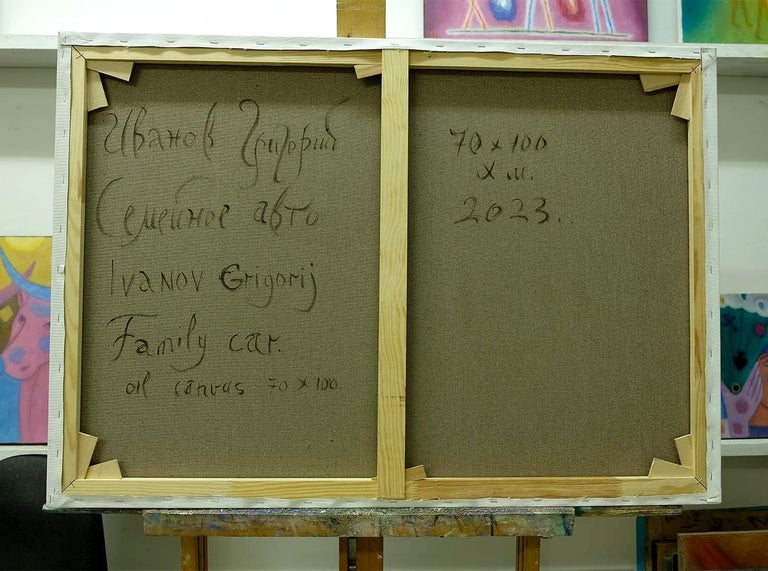 Иванов Григорий
Семейное авто
Ivanov Grigorij
Family car.
oil canvas 70 x 100
70 x 100
х м.
2023.